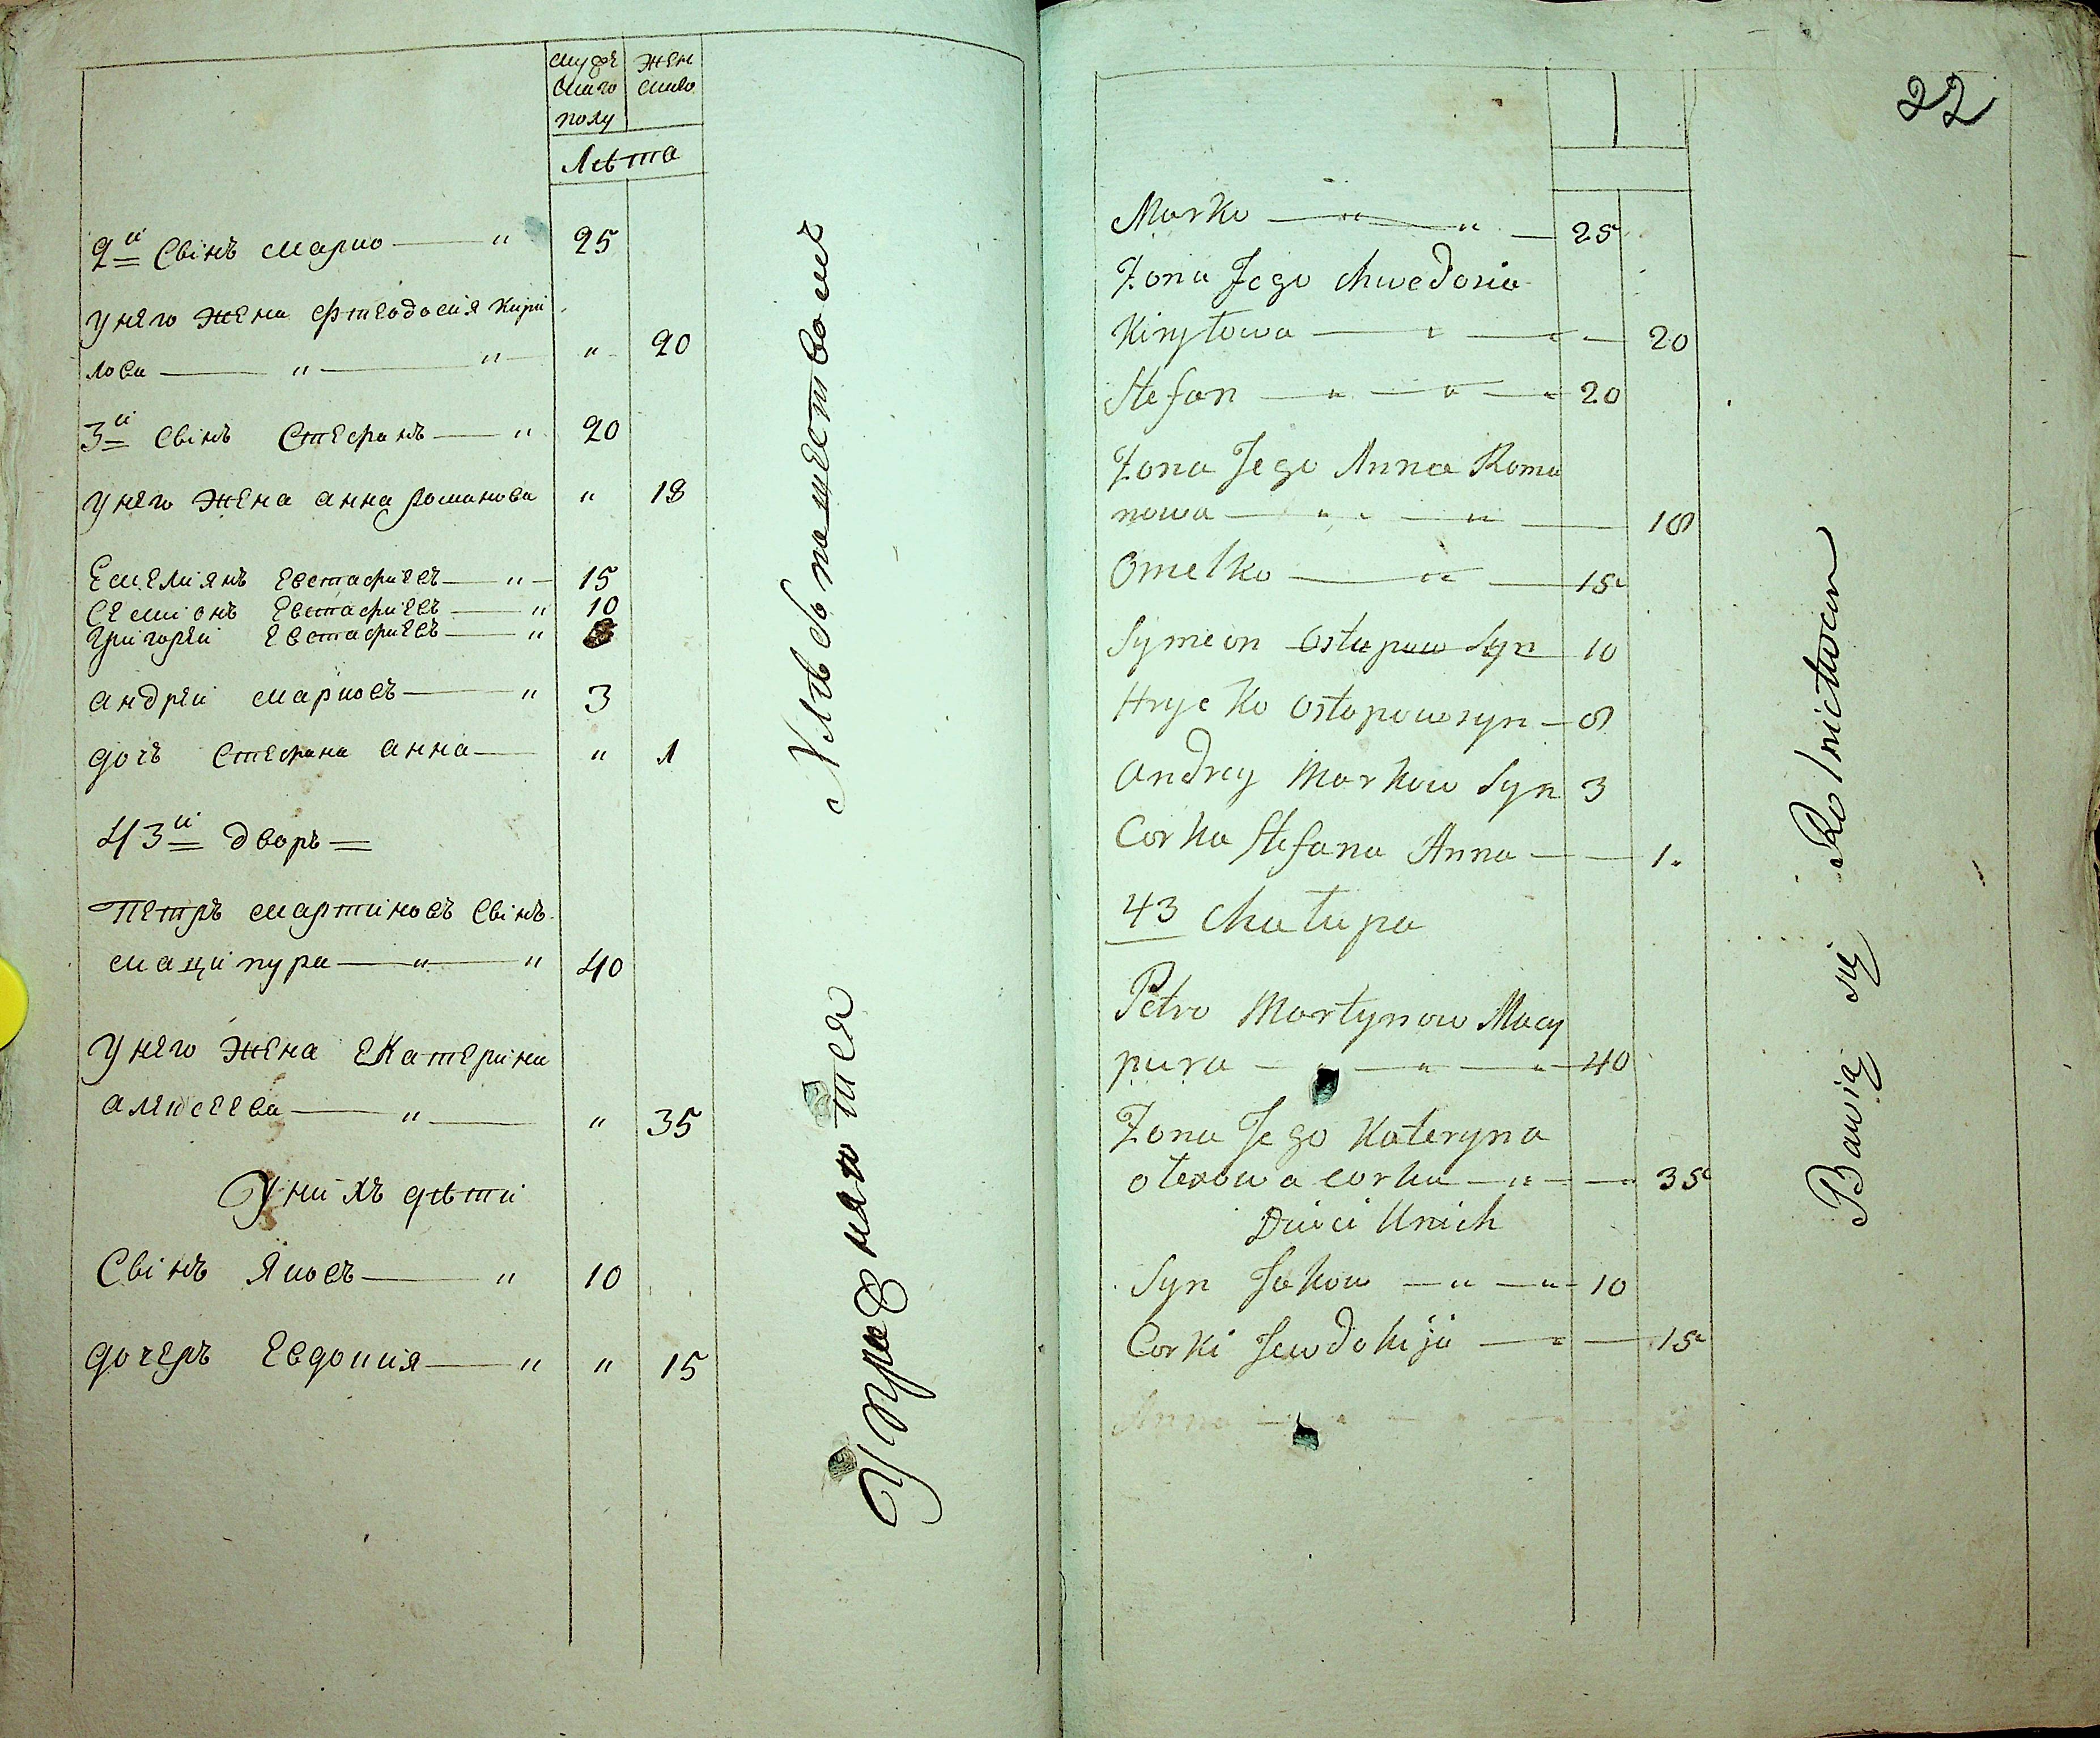 мужескаго полу
женскаго
Лѣта
2й Свінъ марко — " 25
у него жена Фтеодосия Кири
лова — " — " " 20
3й Свінъ Стефанъ — " 20
у него жена анна романова " 18
Емелиянъ Евстафиевъ — " 15
Семионъ Евстафиевъ — " 10
Григорей Евстафиевъ — "
андрей марковъ — " 3
дочь Стефана анна — " 1
43й дворъ
Петръ мартиновъ Свінъ
маципура — " — " 40
у него жена Екатерина
алексеева — " — " 35
У нихъ дѣти
Свінъ Яковъ — " 10
дочеръ Евдокия — " " 15
Упражняются Хлѣбопашествомъ
22
Marko — " — " — 25
Żona Jego Chwedosia
Kiryłowa — " — " — 20
Stefan — " — " — " 20
Żona Jego Anna Roma
nowa — " — " — 18
Omelko — " — 15
Symeon Ostapow Syn 10
Hryc Ko Ostapow syn — 8
Andrey Markow Syn 3
Corka Stefana Anna — 1.
43 Chałupa
Petro Martynow Macy
pura — " — " — " 40
Żona Jego Kateryna
Olexowa corka — " — " 35
Dzieci Unich
Syn Jakow — " — " 10
Corki Jewdokija — " — 15
Anna — " — " — "
Bawią się Rolnictwem